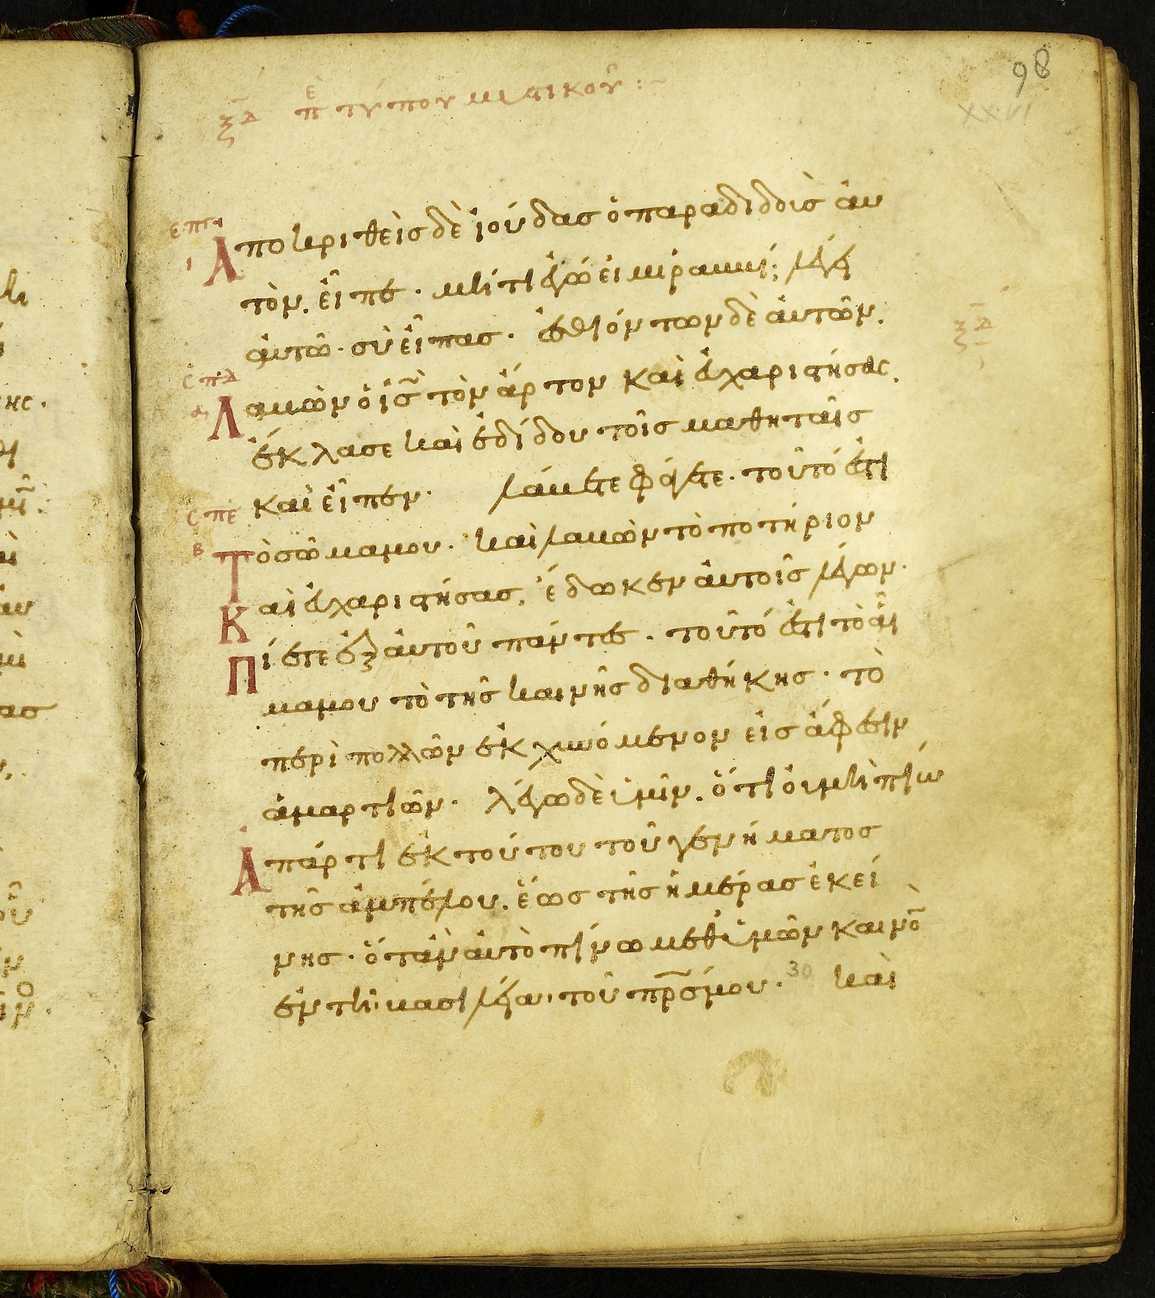 98
XXVI
ξδ π̅ε τύπου μυστικοῦ :~
σπγ
ι
Ἀποκριθεὶς δὲ ἰούδας ὁ παραδιδοὺς αὐ
τὸν. εἶπε· μήτι ἐγώ εἰμι ῥαββί; λέγει
αὐτῶ· σὺ εἶπας· ἐσθιόντων δὲ αὐτῶν.
ξδ
σπδ
α
Λαβὼν ὁ ἰς̅ τὸν ἄρτον καὶ εὐχαριστήσας.
ἔκλασε καὶ ἐδίδου τοῖς μαθηταῖς
καὶ εἶπεν· λάβετε φάγετε· τοῦτό ἐστι
σπε
β
Τὸ σῶμα μου· καὶ λαβὼν τὸ ποτήριον
Καὶ εὐχαριστήσας, ἔδωκεν αὐτοῖς λέγων·
Πίετε ἐξ αὐτοῦ πάντες· τοῦτό ἐστι τὸ αἷ
μα μου τὸ τῆς καινῆς διαθήκης· τὸ
περὶ πολλῶν ἐκχυνόμενον εἰς ἄφεσιν
ἁμαρτιῶν· λέγω δὲ ὑμῖν. ὅτι οὐ μὴ πίω
Ἀπάρτι ἐκ τούτου τοῦ γενήματος
τῆς ἀμπέλου. ἕως τῆς ἡμέρας ἐκεί
νης· ὅταν αὐτὸ πίνω μεθ' ὑμῶν καινὸ̅
ἐν τῆ βασιλεία τοῦ πρ̅ς μου· 30 καὶ